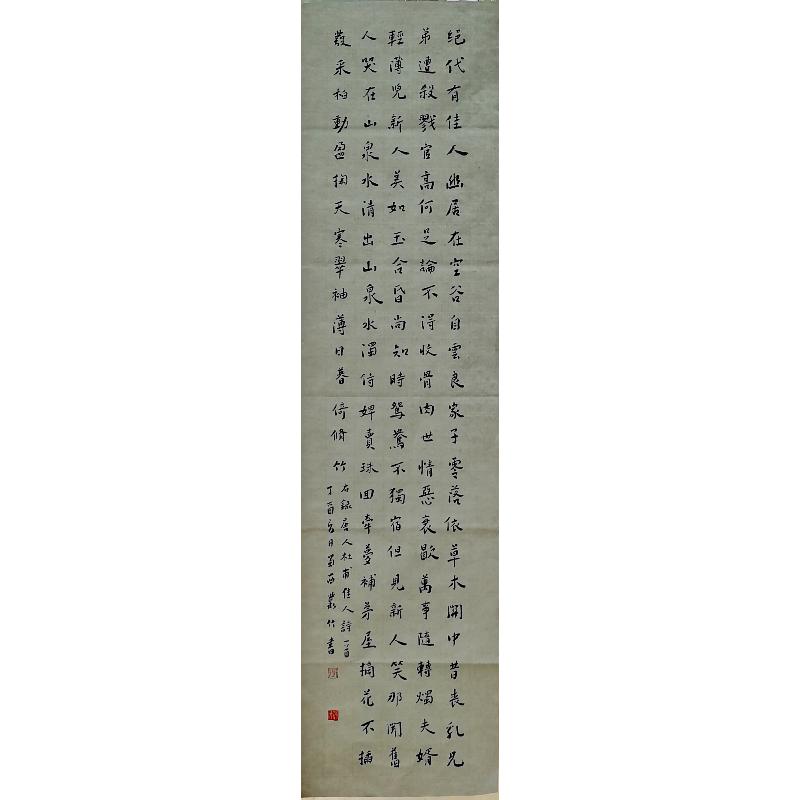 絕代有佳人幽居在空谷自雲良家子零落依草木關中昔喪乱兄
弟遭殺戮官高何足論不得收骨肉世情惡衰歇萬事隨轉燭夫婿
輕薄兒新人美如玉合昏尚知時鴛鴦不獨宿但見新人笑那聞舊
人哭在山泉水清出山泉水濁侍婢賣珠回牽蘿補茅屋摘花不插
髮采柏動盈掬天寒翠袖薄日暮倚脩竹
右錄唐人杜甫佳人詩一首
丁酉月蜀西竹書